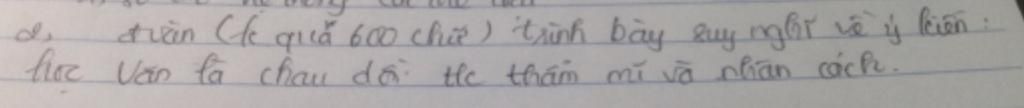 d, đoạn (k quá 600 chữ) trình bày suy nghĩ về ý kiến :
học Văn là chau dồi tlc thẩm mĩ và nhân cách.